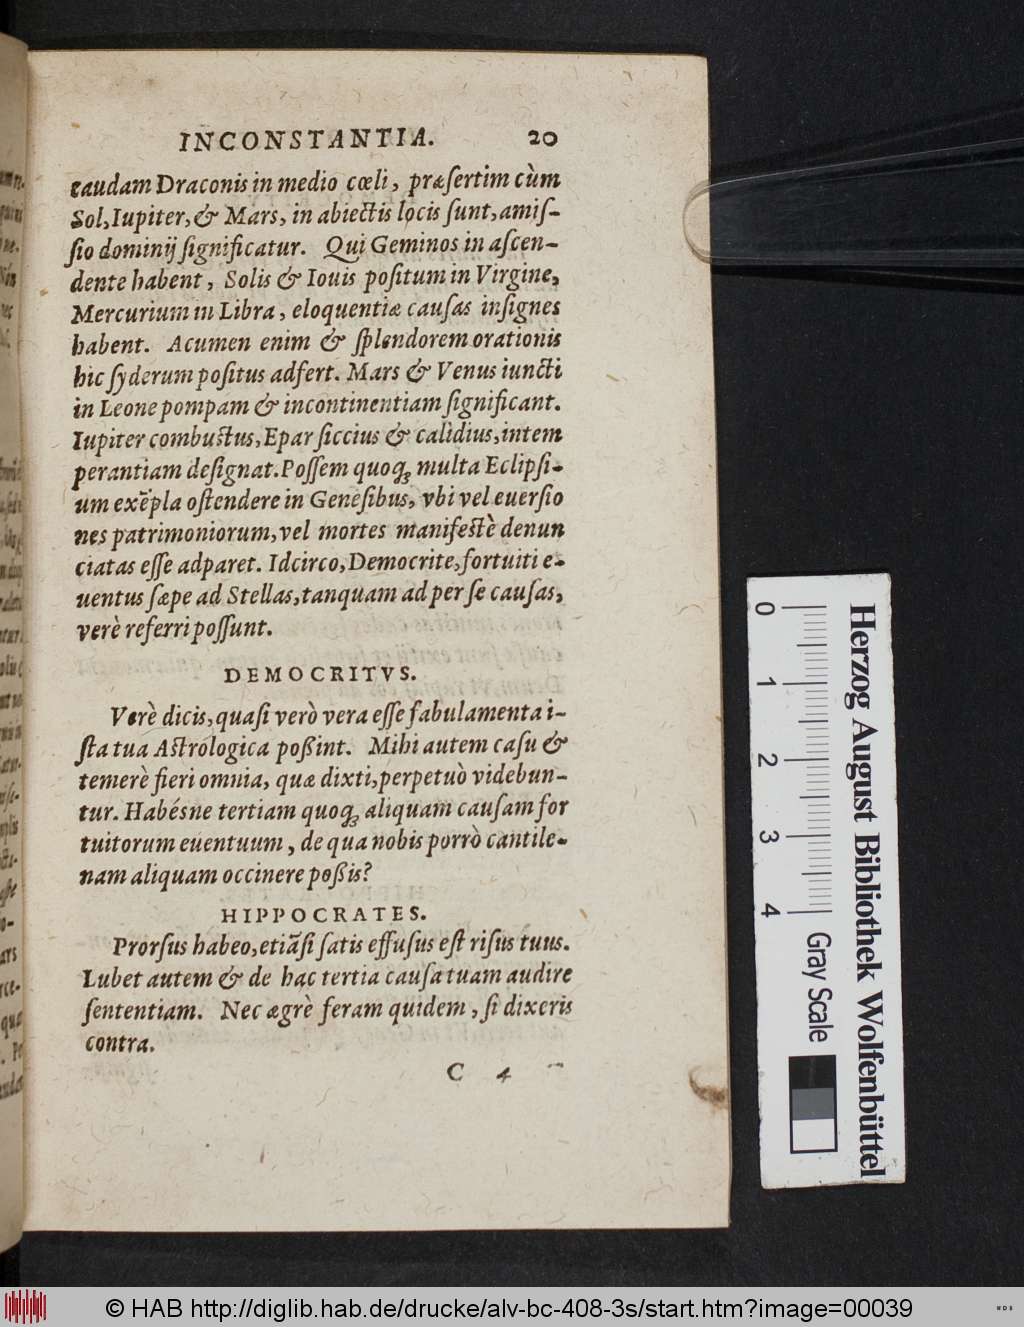 INCONSTANTIA. 20
caudam Draconis in medio cœli, præſertim cùm
Sol, Iupiter, & Mars, in abiectis locis ſunt, amiſ-
ſio dominij ſignificatur. Qui Geminos in aſcen-
dente habent, Solis & Iouis poſitum in Virgine,
Mercurium in Libra, eloquentiæ cauſas inſignes
habent. Acumen enim & ſplendorem orationis
hic ſyderum poſitus adfert. Mars & Venus iuncti
in Leone pompam & incontinentiam ſignificant.
Iupiter combuſtus, Epar ſiccius & calidius, intem
perantiam deſignat. Poſſem quoqꝫ multa Eclipſi-
um exẽpla oſtendere in Geneſibus, vbi vel euerſio
nes patrimoniorum, vel mortes manifeſtè denun
ciatas eſſe adparet. Idcirco, Democrite, fortuiti e-
uentus ſæpe ad Stellas, tanquam ad per ſe cauſas,
verè referri poſſunt.
DEMOCRITVS.
Verè dicis, quaſi verò vera eſſe fabulamenta i-
ſta tua Aſtrologica poßint. Mihi autem caſu &
temerè fieri omnia, quæ dixti, perpetuò videbun-
tur. Habésne tertiam quoqꝫ aliquam cauſam for
tuitorum euentuum, de qua nobis porrò cantile-
nam aliquam occinere poßis?
HIPPOCRATES.
Prorſus habeo, etiãſi ſatis effuſus eſt riſus tuus.
Lubet autem & de hac tertia cauſa tuam audire
ſententiam. Nec ægrè feram quidem, ſi dixeris
contra.
C 4
0 1 2 3 4
Gray Scale
Herzog August Bibliothek Wolfenbüttel
© HAB http://diglib.hab.de/drucke/alv-bc-408-3s/start.htm?image=00039